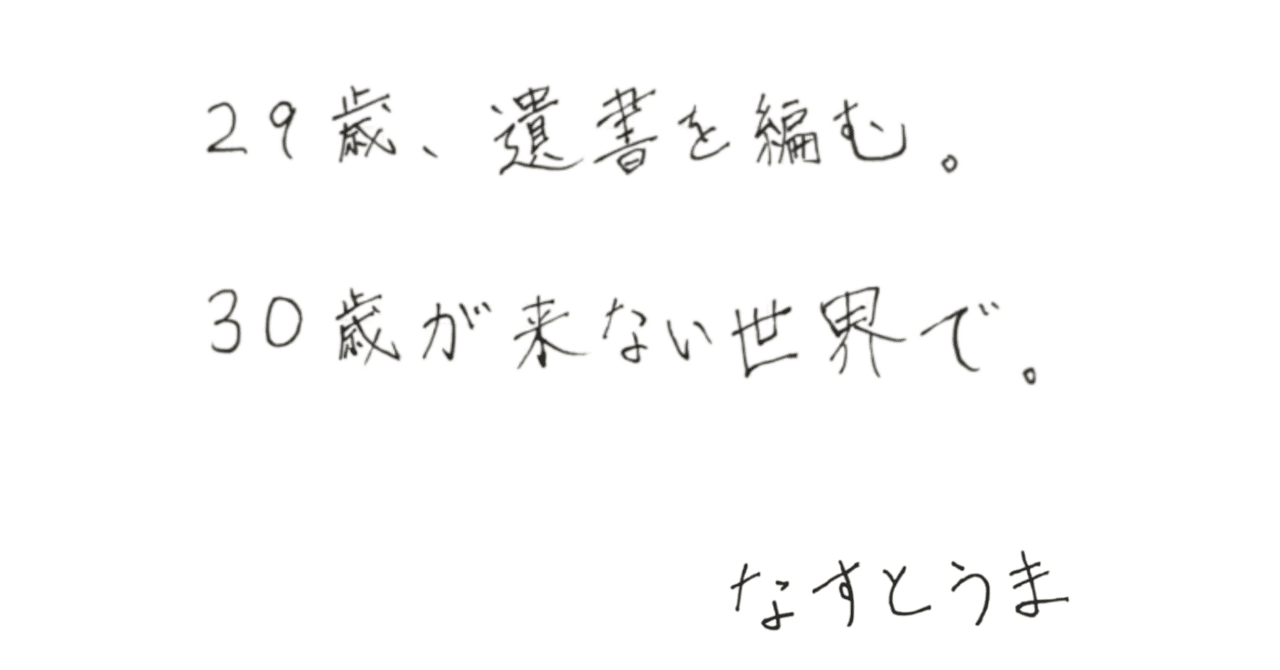 29歳、遺書を編む。
30歳が来ない世界で。
なすとうま